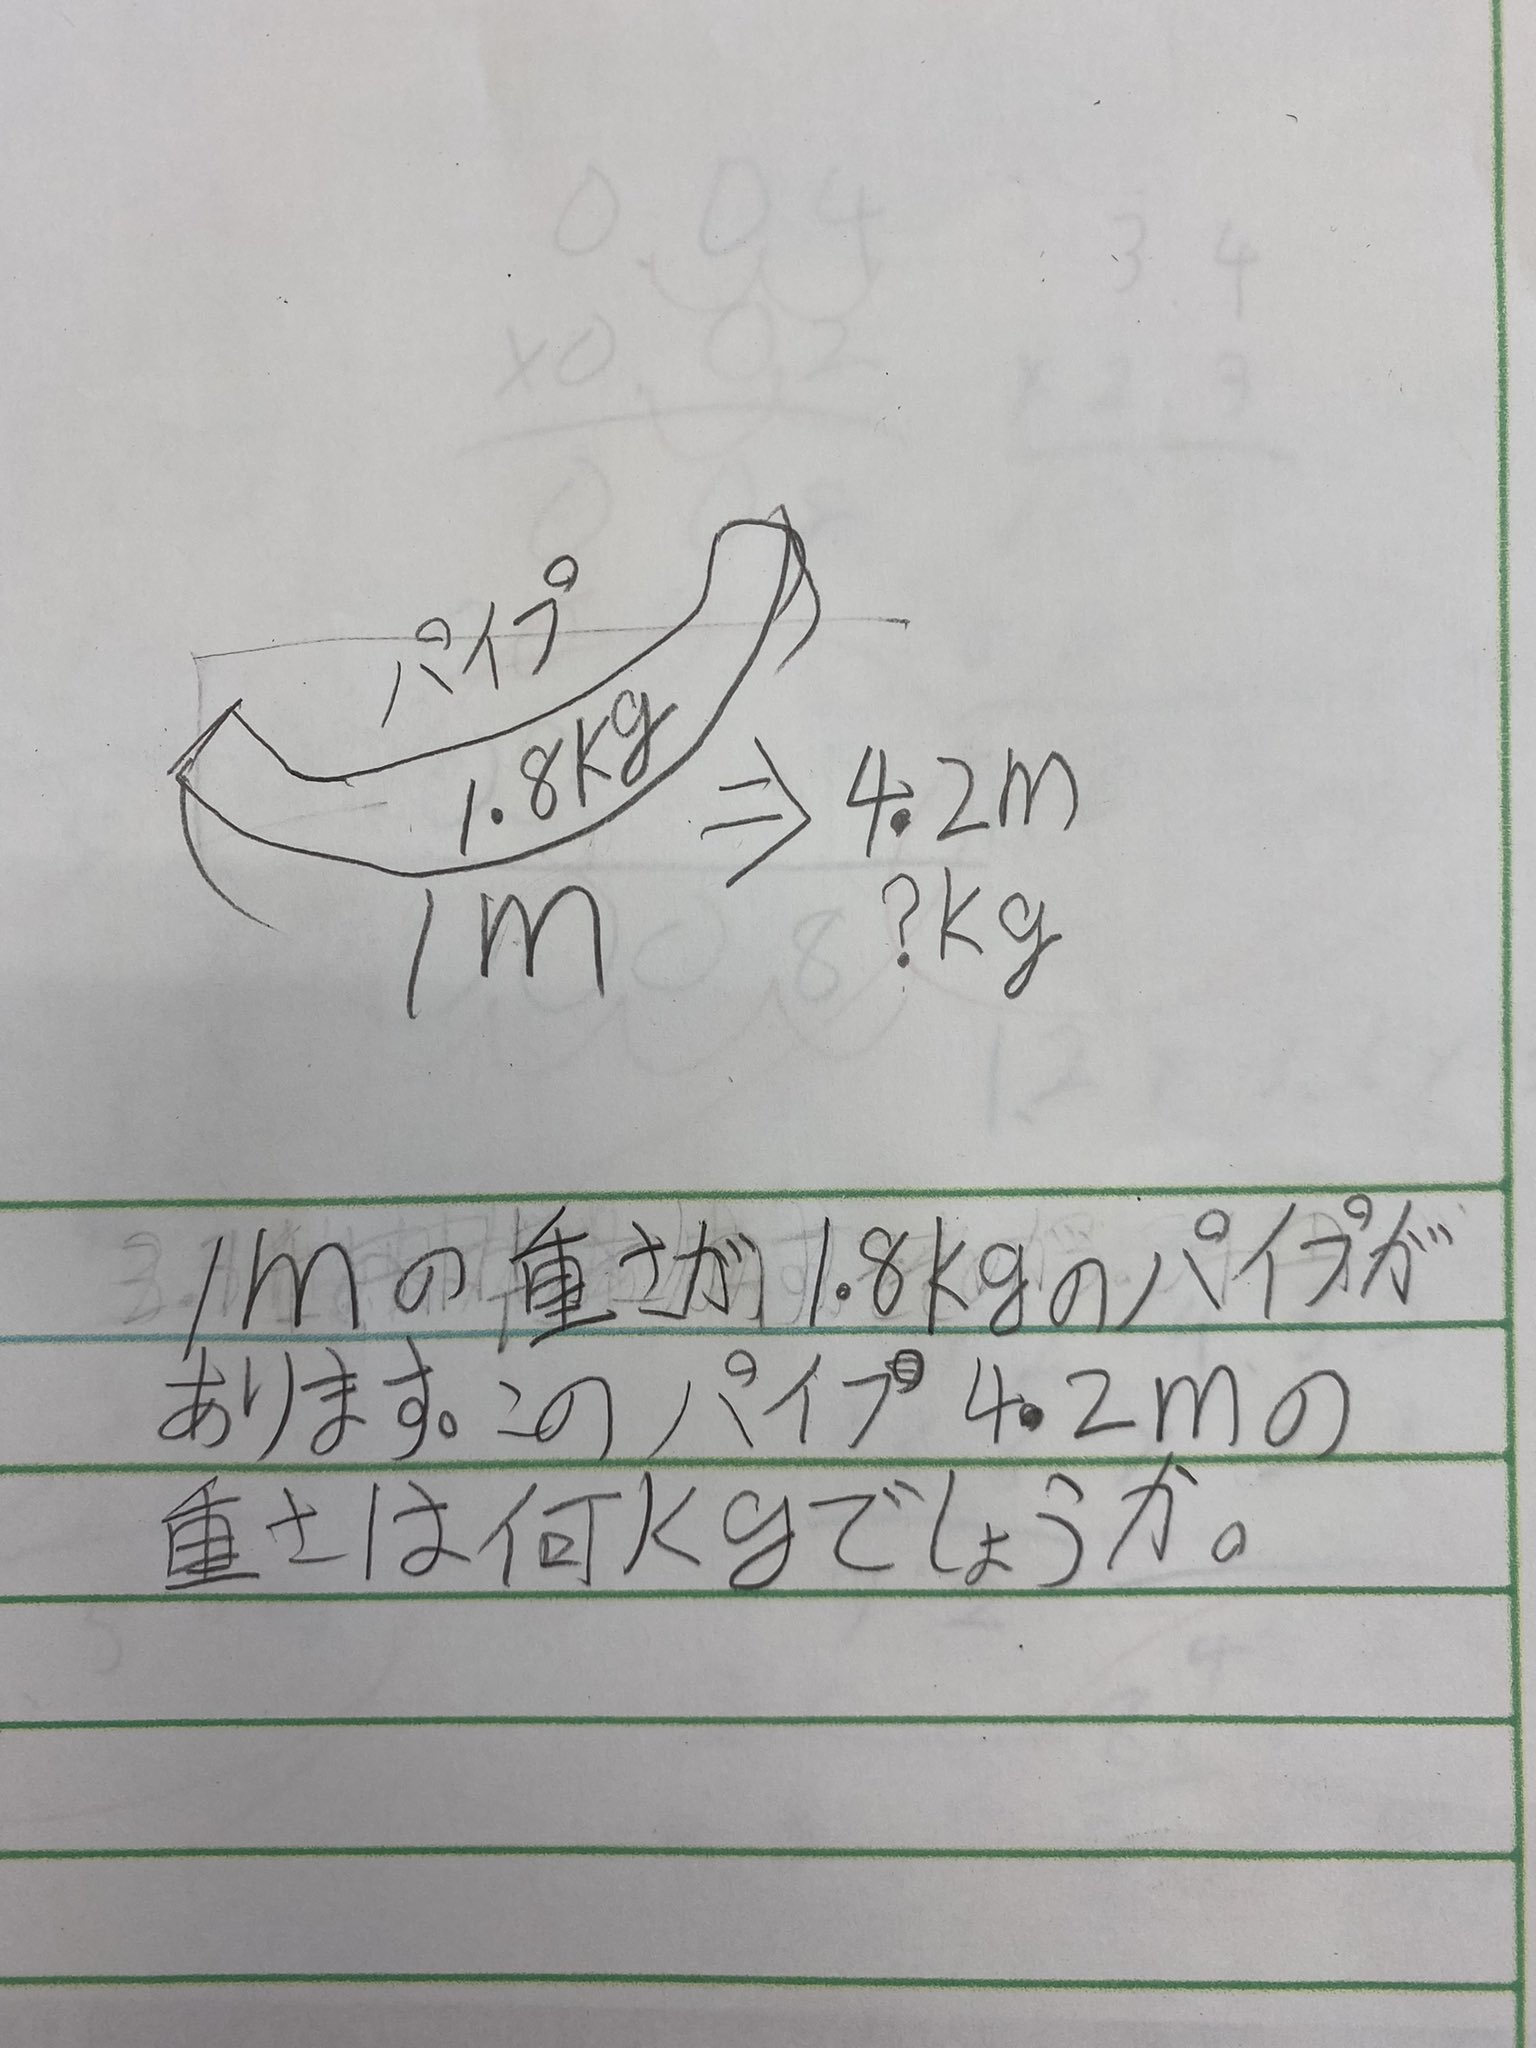 パイプ
1.8kg
1m
⇒ 4.2m
?kg
1mの重さが1.8kgのパイプが
あります。このパイプ4.2mの
重さは何kgでしょうか。